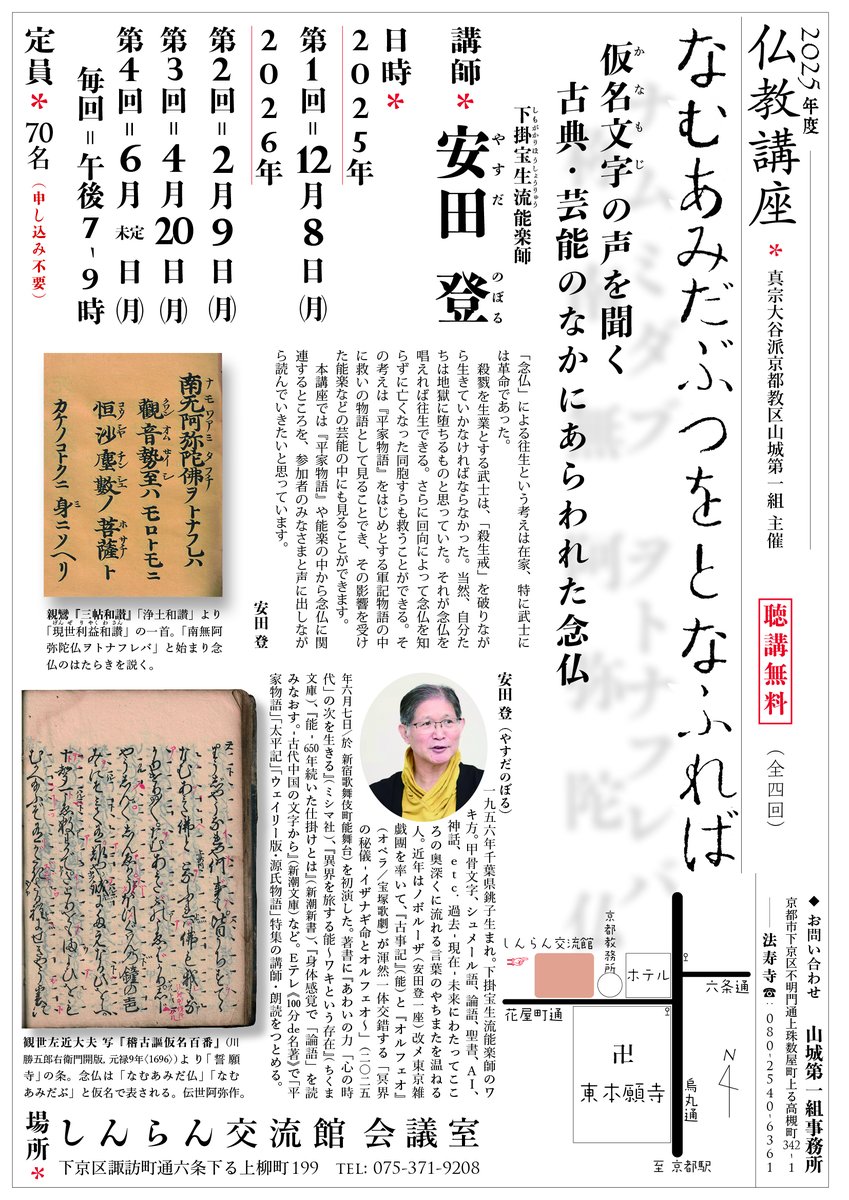 2025年度
仏教講座
*
真宗大谷派京都教区山城第一組 主催
聴講無料
(全四回)
なむあみだぶつをとなふれば
仮名文字の声を聞く
かなもじ
古典・芸能のなかにあらわれた念仏
下掛宝生流能楽師
しもがかりほうしょうりゅう
講師*
安田 登
やすだ のぼる
日時*
2025年
第1回=12月8日(月)
2026年
第2回=2月9日(月)
第3回=4月20日(月)
第4回=6月 未定 日(月)
毎回=午後7~9時
定員* 70名(申し込み不要)
「念仏」による往生という考えは在家、特に武士に
は革命であった。
殺戮を生業とする武士は、「殺生戒」を破りなが
ら生きていかなければならなかった。当然、自分た
ちは地獄に堕ちるものと思っていた。それが念仏を
唱えれば往生できる。さらに回向によって念仏を知
らずに亡くなった同胞すらも救うことができる。そ
の考えは『平家物語』をはじめとする軍記物語の中
に救いの物語として見ることでき、その影響を受け
た能楽などの芸能の中にも見ることができます。
本講座では『平家物語』や能楽の中から念仏に関
連するところを、参加者のみなさまと声に出しなが
ら読んでいきたいと思っています。
安田 登
南无阿弥陀佛ヲトナフレハ
觀音勢至ハモロトモニ
恒沙塵數ノ菩薩ト
カケノコトクニ身ニソヘリ
親鸞『三帖和讃』「浄土和讃」より
「現世利益和讃」の一首。「南無阿
げんぜりやくわさん
弥陀仏ヲトナフレバ」と始まり念
仏のはたらきを説く。
安田 登(やすだのぼる)
一九五六年千葉県銚子生まれ。下掛宝生流能楽師のワ
キ方。甲骨文字、シュメール語、論語、聖書、AI、
神話、etc. 過去-現在-未来にわたってここ
ろの奥深くに流れる言葉のやちまたを温ねる
人。近年はノボルーザ(安田登一座)改メ東京雑
戯團を率いて、『古事記』(能)と『オルフェオ』
(オペラ/宝塚歌劇)が渾然一体交錯する「冥界
の秘儀-イザナギ命とオルフェオ~」(二〇二五
年六月七日/於 新宿歌舞伎町能舞台)を初演した。著書に『あわいの力「心の時
代」の次を生きる』(ミシマ社)、『異界を旅する能~ワキという存在』(ちくま
文庫)、『能-650年続いた仕掛けとは』(新潮新書)、『身体感覚で「論語」を読
みなおす。-古代中国の文字から』(新潮文庫)など。Eテレ《100分de名著》で「平
家物語」「太平記」「ウェイリー版・源氏物語」特集の講師・朗読をつとめる。
観世左近大夫 写『稽古謳仮名百番』(川
勝五郎右衛門開版, 元禄9年〈1696〉)より「誓願
寺」の条。念仏は「なむあみだ仏」「なむ
あみだぶ」と仮名で表される。伝世阿弥作。
◆お問い合わせ 山城第一組事務所
京都市下京区不明門通上珠数屋町上る高槻町342-1
法寿寺☎:080-2540-6361
しんらん交流館
京都教務所
ホテル
六条通
花屋町通
卍
東本願寺
烏丸通
N
至 京都駅
場所*
しんらん交流館 会議室
下京区諏訪町通六条下る上柳町199 TEL: 075-371-9208